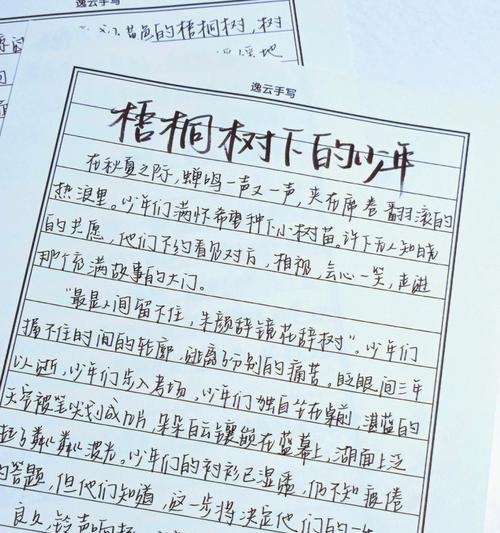 逸云手写
黄色的梧桐树，树
逸云手写
梧桐树下的少年
在秋夏之际，蝉鸣一声又一声，夹在席卷翻滚的
热浪里。少年们满怀希望种下小树苗。许下无人知晓
的共愿，他们不约看见对方，相视，会心一笑，走进
那个充满故事的大门。
“最是人间留不住，朱颜辞镜花辞树”。少年们
握不住时间的轮廓，逃离不了分别的痛苦。眨眼间三年
以逝，少年们步入考场，少年们独自坐在桌前，湛蓝的
天空被笔尖划成几片，朵朵白云镶嵌在蓝幕上，湖面上泛
起了粼粼波光。少年们的衬衫已湿透，仍不知疲倦
的答题，但他们知道，这一步将决定他们的一
良久，铃声响